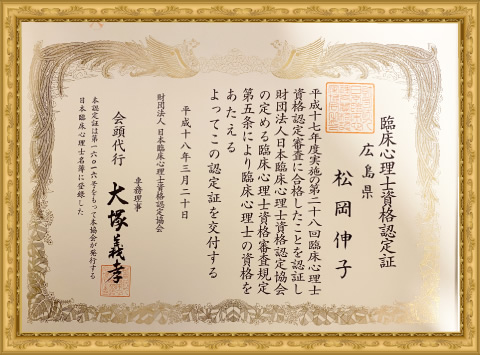 臨床心理士資格認定証
広島県
松岡伸子
平成十七年度実施の第二十八回臨床心理士
資格認定審査に合格したことを認証し
財団法人日本臨床心理士資格認定協会
の定める臨床心理士資格審査規定
第五条により臨床心理士の資格を
あたえる
よってこの認定証を交付する
平成十八年三月二十日
財団法人 日本臨床心理士資格認定協会
専務理事
会頭代行 大塚義孝
本認定証は第一六〇一六号をもって本協会が発行する
日本臨床心理士名簿に登録した